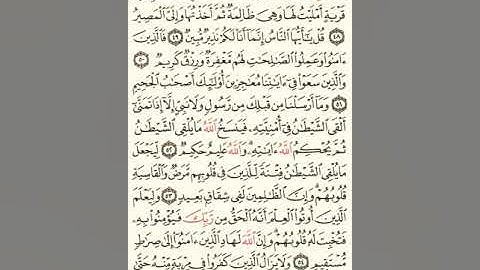 قَرْيَةٍ أَمْلَيْتُ لَهَا وَهِيَ ظَالِمَةٌ ثُمَّ أَخَذْتُهَا وَإِلَيَّ الْمَصِيرُ
٤٨ قُلْ يَٰٓأَيُّهَا النَّاسُ إِنَّمَآ أَنَا۠ لَكُمْ نَذِيرٌ مُّبِينٌ ٤٩ فَالَّذِينَ
ءَامَنُوا۟ وَعَمِلُوا۟ الصَّٰلِحَٰتِ لَهُم مَّغْفِرَةٌ وَرِزْقٌ كَرِيمٌ ٥٠
وَالَّذِينَ سَعَوْا۟ فِىٓ ءَايَٰتِنَا مُعَٰجِزِينَ أُو۟لَٰٓئِكَ أَصْحَٰبُ الْجَحِيمِ
٥١ وَمَآ أَرْسَلْنَا مِن قَبْلِكَ مِن رَّسُولٍ وَلَا نَبِىٍّ إِلَّآ إِذَا تَمَنَّىٰٓ
أَلْقَى الشَّيْطَٰنُ فِىٓ أُمْنِيَّتِهِۦ فَيَنسَخُ اللَّهُ مَا يُلْقِى الشَّيْطَٰنُ
ثُمَّ يُحْكِمُ اللَّهُ ءَايَٰتِهِۦ وَاللَّهُ عَلِيمٌ حَكِيمٌ ٥٢ لِّيَجْعَلَ
مَا يُلْقِى الشَّيْطَٰنُ فِتْنَةً لِّلَّذِينَ فِى قُلُوبِهِم مَّرَضٌ وَالْقَاسِيَةِ
قُلُوبُهُمْ وَإِنَّ الظَّٰلِمِينَ لَفِى شِقَاقٍ بَعِيدٍ ٥٣ وَلِيَعْلَمَ
الَّذِينَ أُوتُوا۟ الْعِلْمَ أَنَّهُ الْحَقُّ مِن رَّبِّكَ فَيُؤْمِنُوا۟ بِهِۦ
فَتُخْبِتَ لَهُۥ قُلُوبُهُمْ وَإِنَّ اللَّهَ لَهَادِ الَّذِينَ ءَامَنُوٓا۟ إِلَىٰ صِرَٰطٍ
مُّسْتَقِيمٍ ٥٤ وَلَا يَزَالُ الَّذِينَ كَفَرُوا۟ فِى مِرْيَةٍ مِّنْهُ حَتَّىٰ